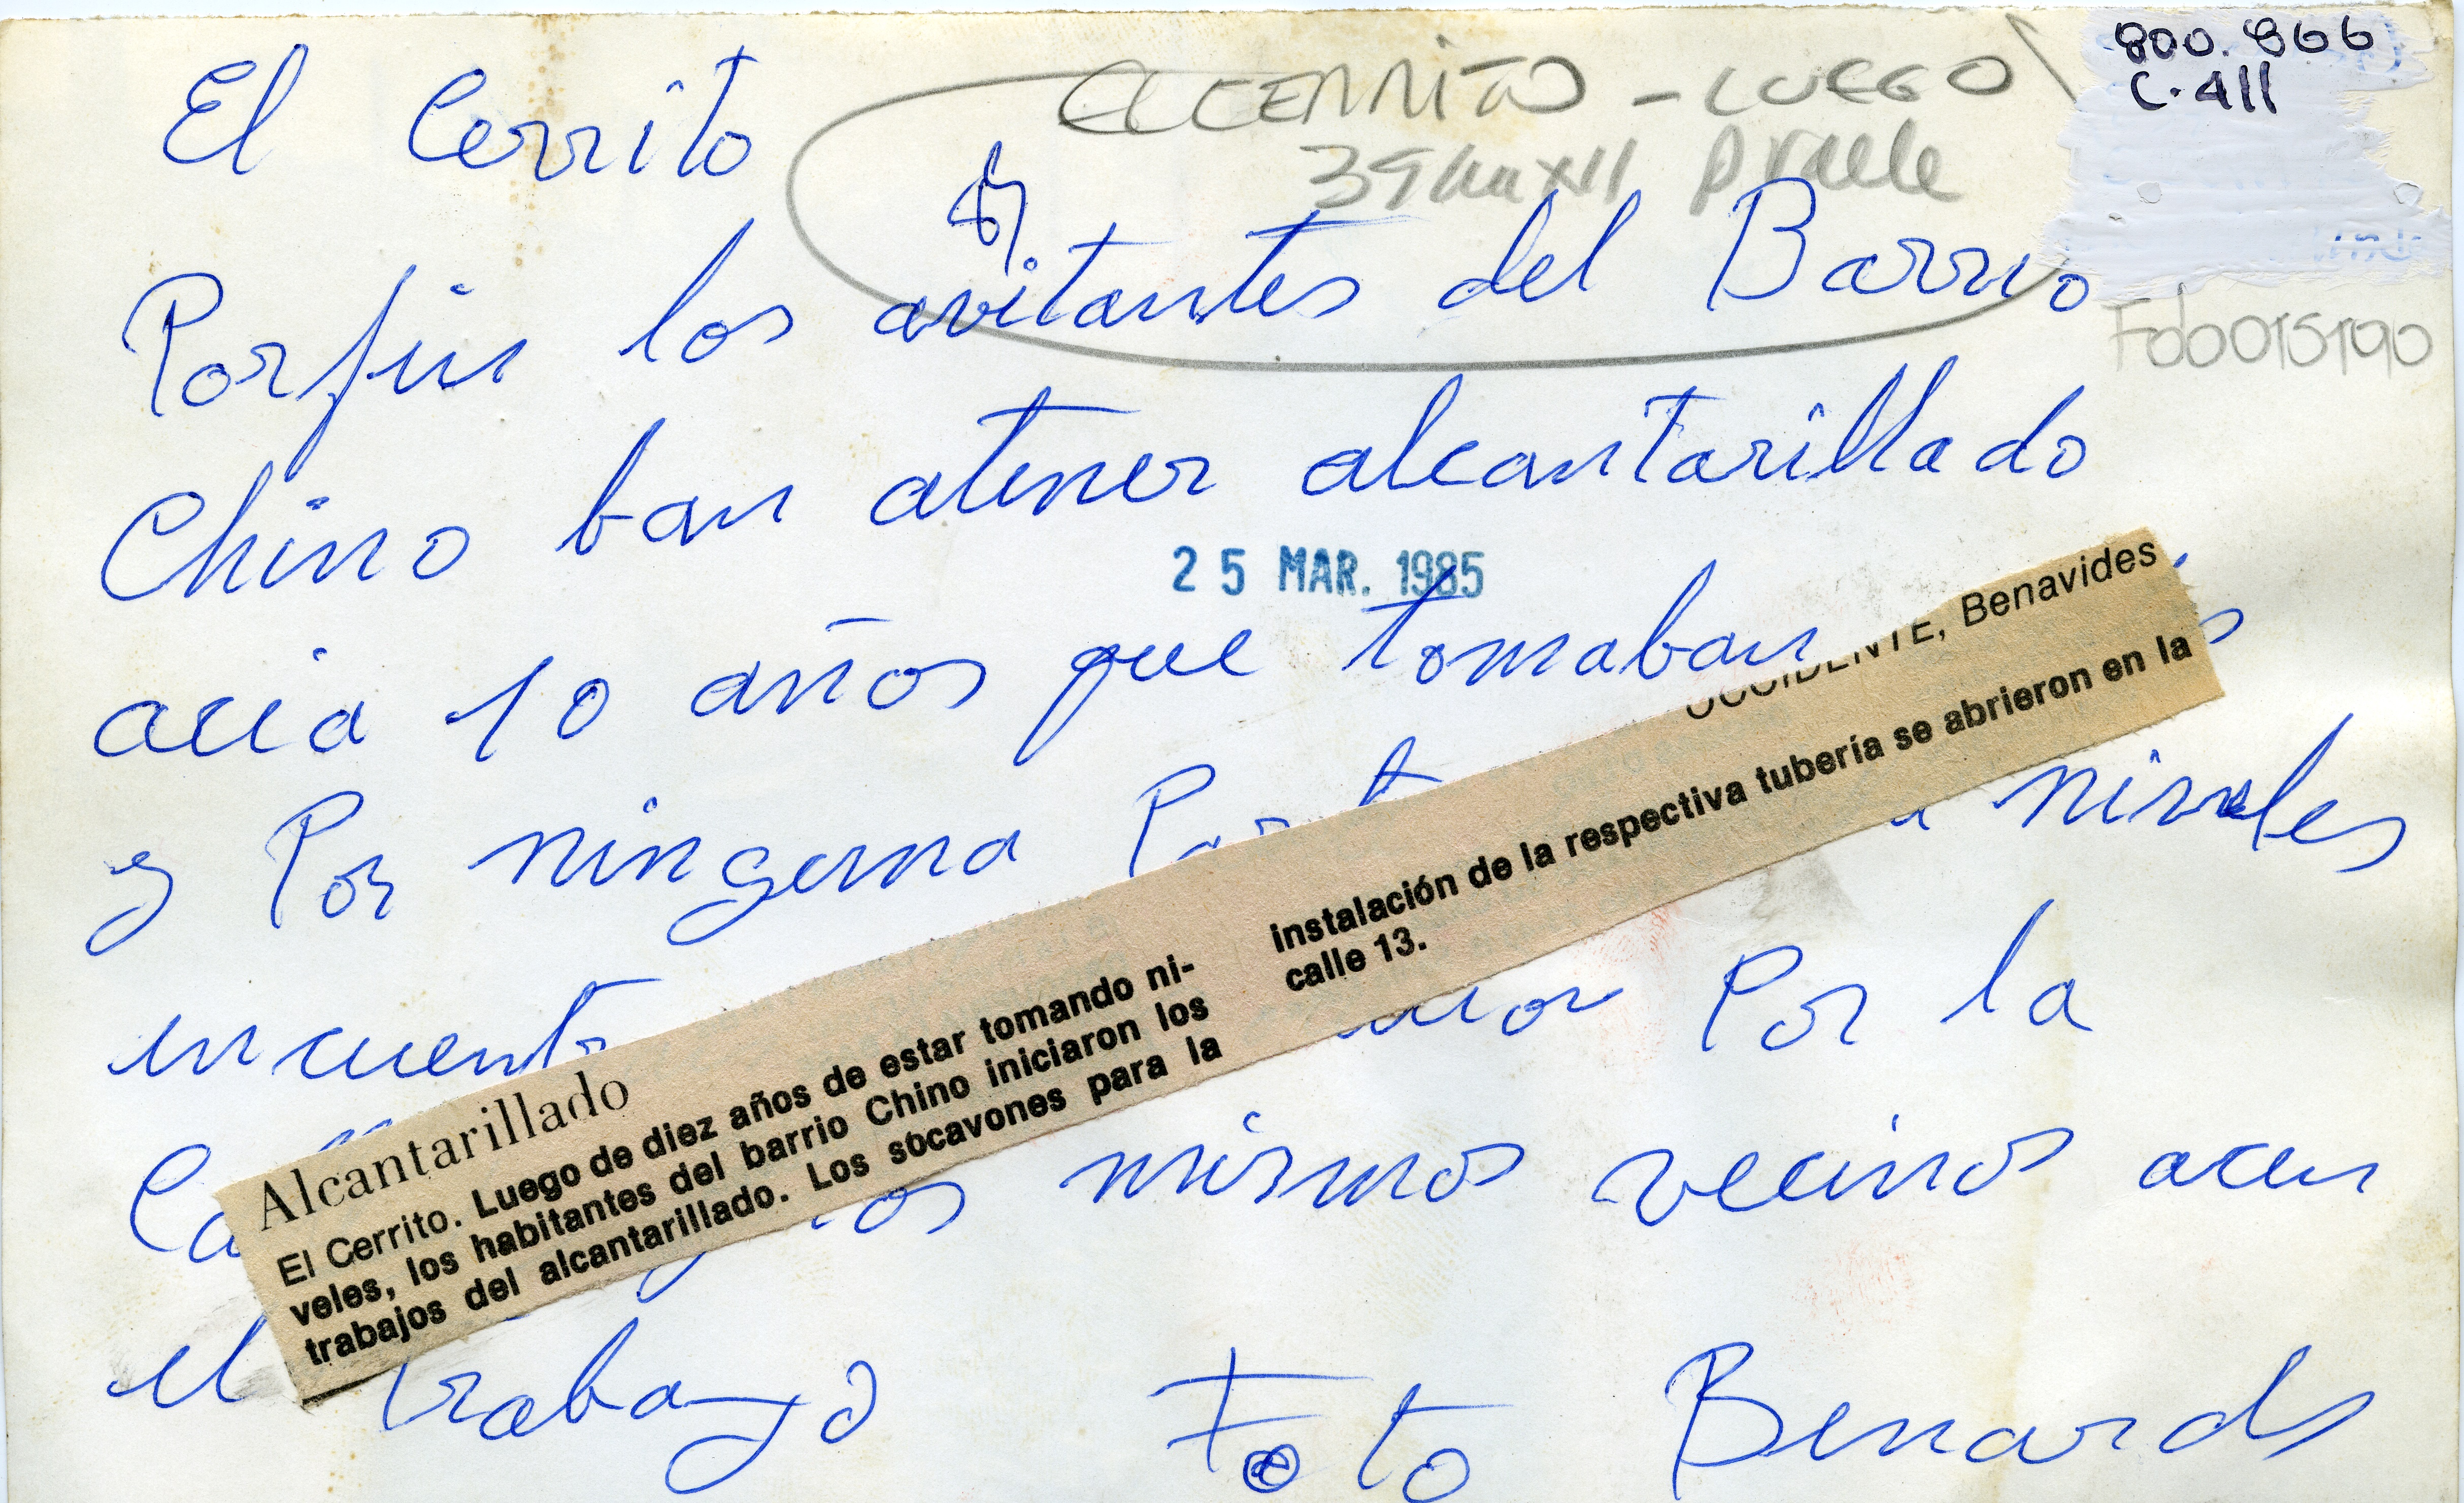 800.866
C.411
El Cerrito
EL CERRITO - LUEGO
Fdb015190
Porfin los avitantes del Barrio
Chino ban atener alcantarillado
25 MAR. 1985
acia 10 años que tomaban
y Por ninguna
niveles
Por la
los mismos vecinos acen
el trabajo Foto Benards
OCCIDENTE, Benavides
Alcantarillado
El Cerrito. Luego de diez años de estar tomando ni-
veles, los habitantes del barrio Chino iniciaron los
trabajos del alcantarillado. Los socavones para la
instalación de la respectiva tubería se abrieron en la
calle 13.